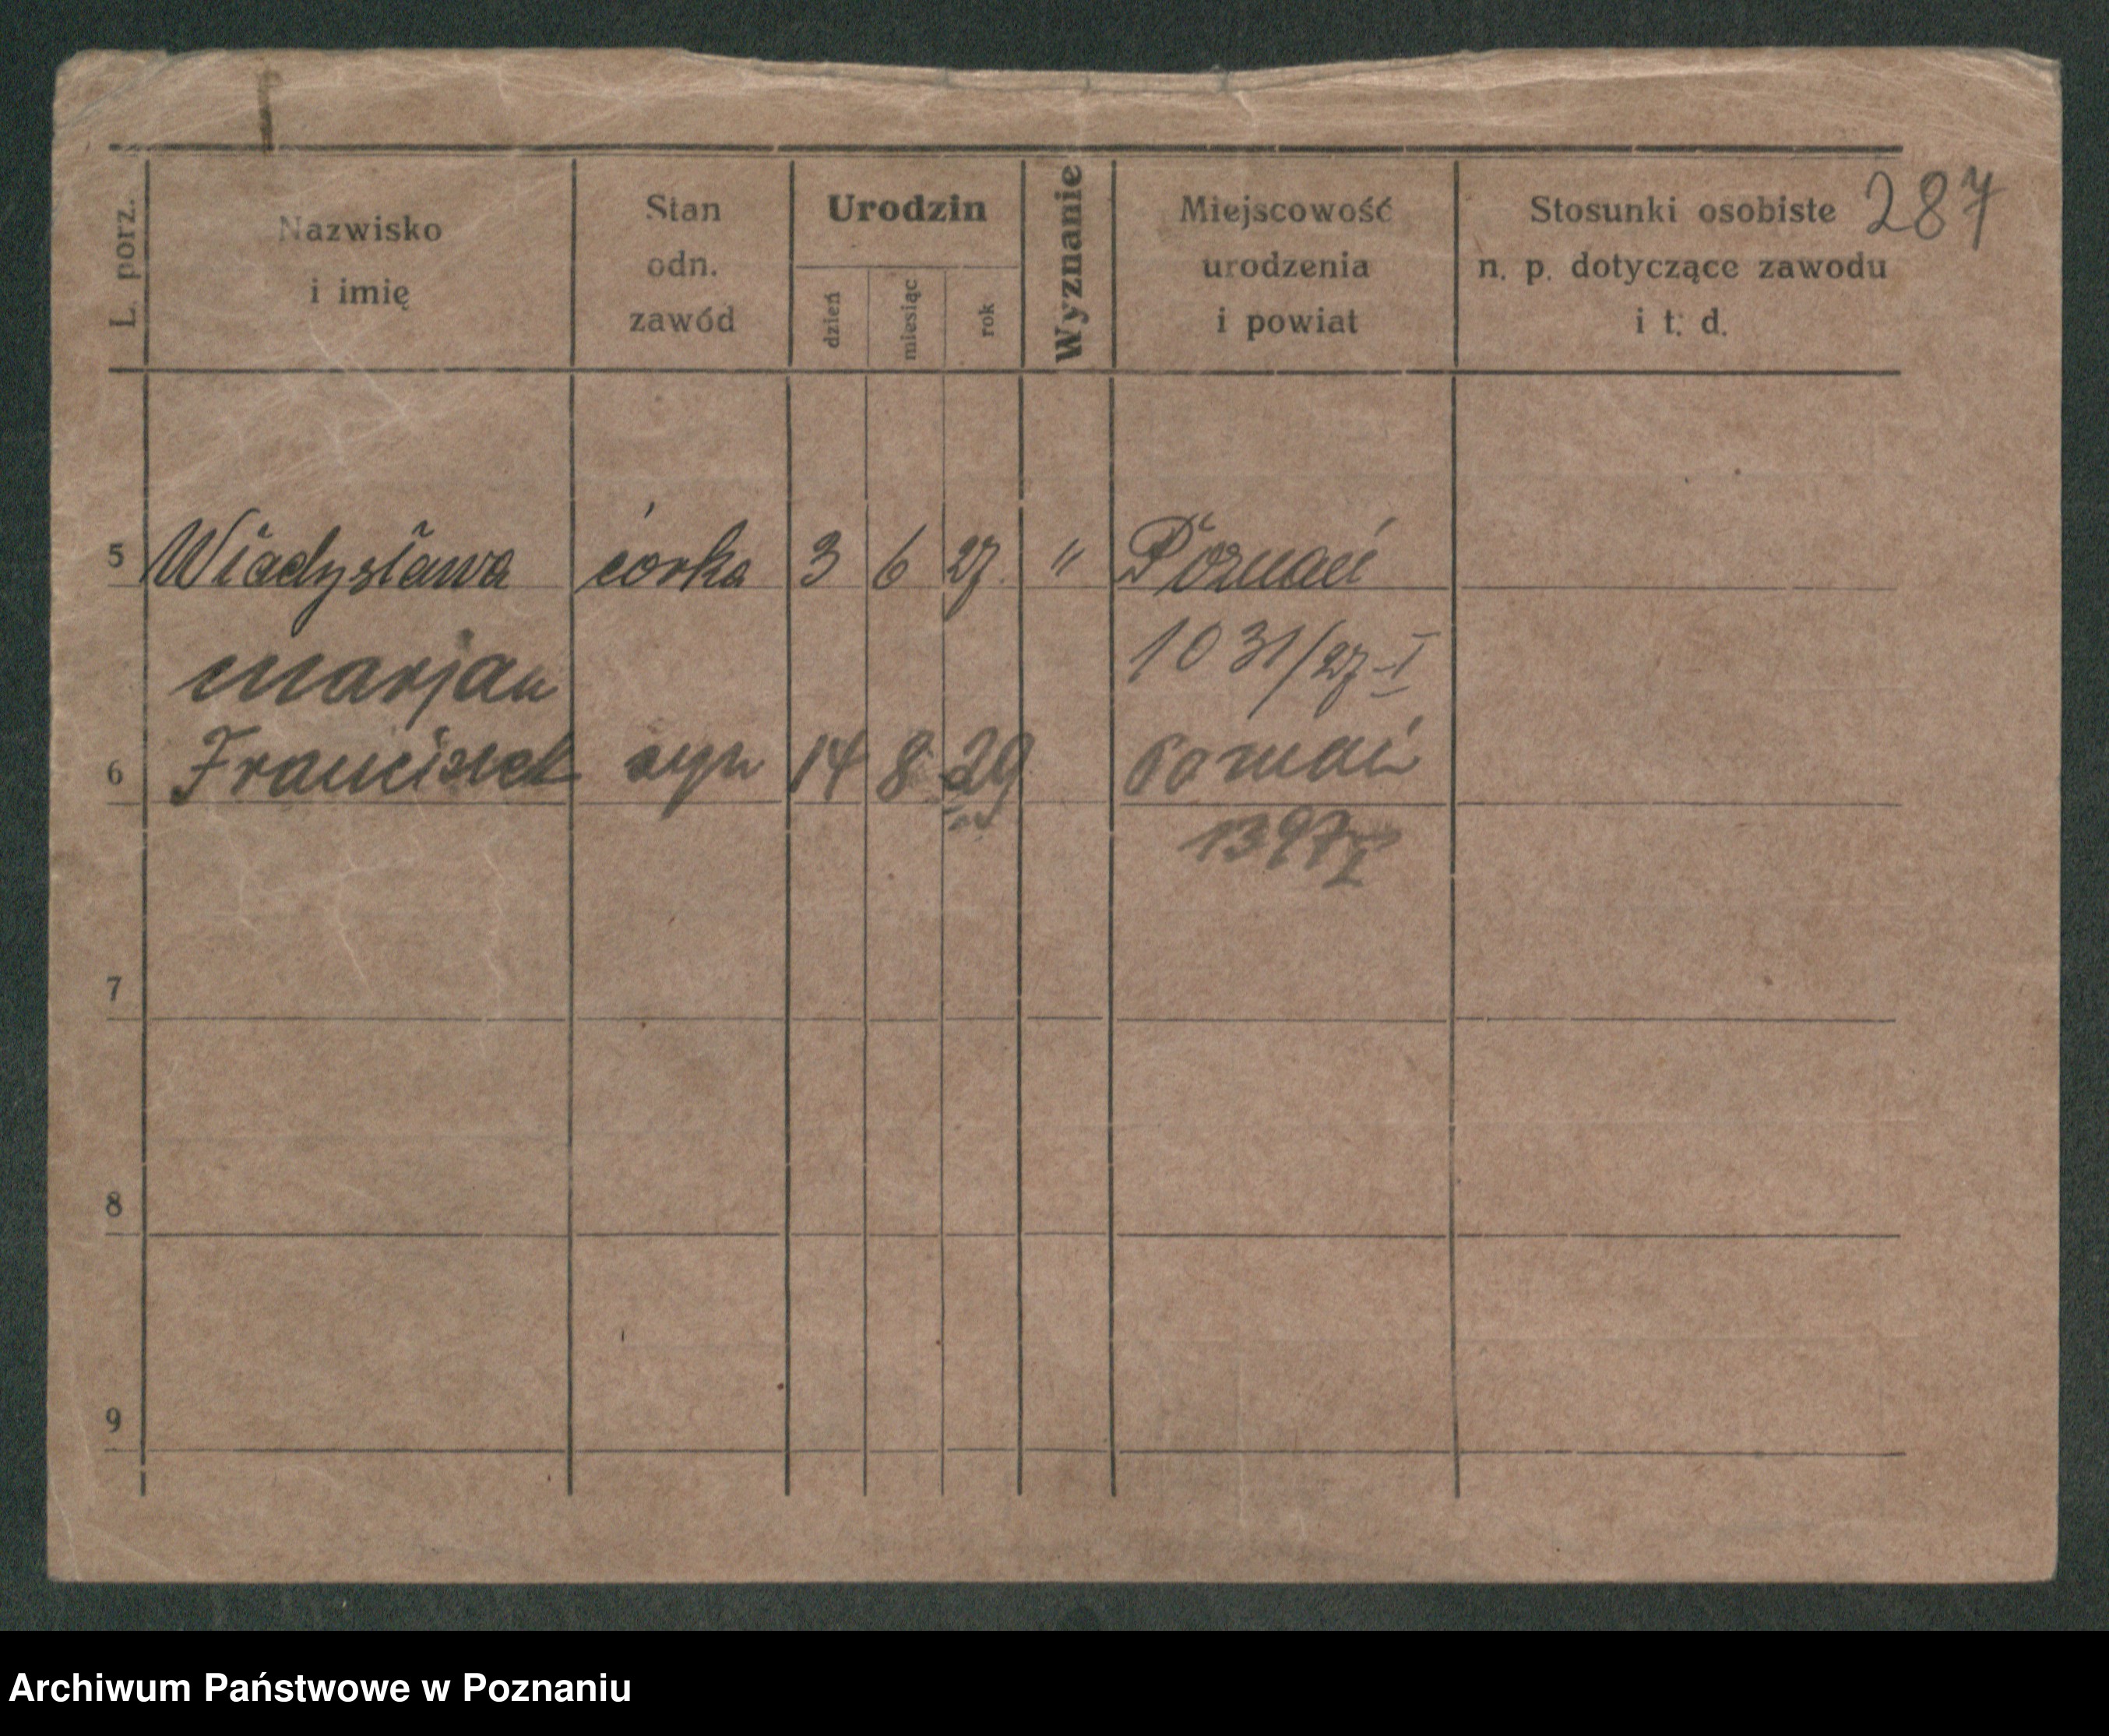 287
L. porz.
Nazwisko
i imię
Stan
odn.
zawód
Urodzin
dzień
miesiąc
rok
Wyznanie
Miejscowość
urodzenia
i powiat
Stosunki osobiste
n. p. dotyczące zawodu
i t. d.
5 Władysława córka 3 6 27. " Poznań
1031/27-I
Marjan
6 Franciszek syn 14 8 29 Poznań
1397 I
7
8
9
Archiwum Państwowe w Poznaniu